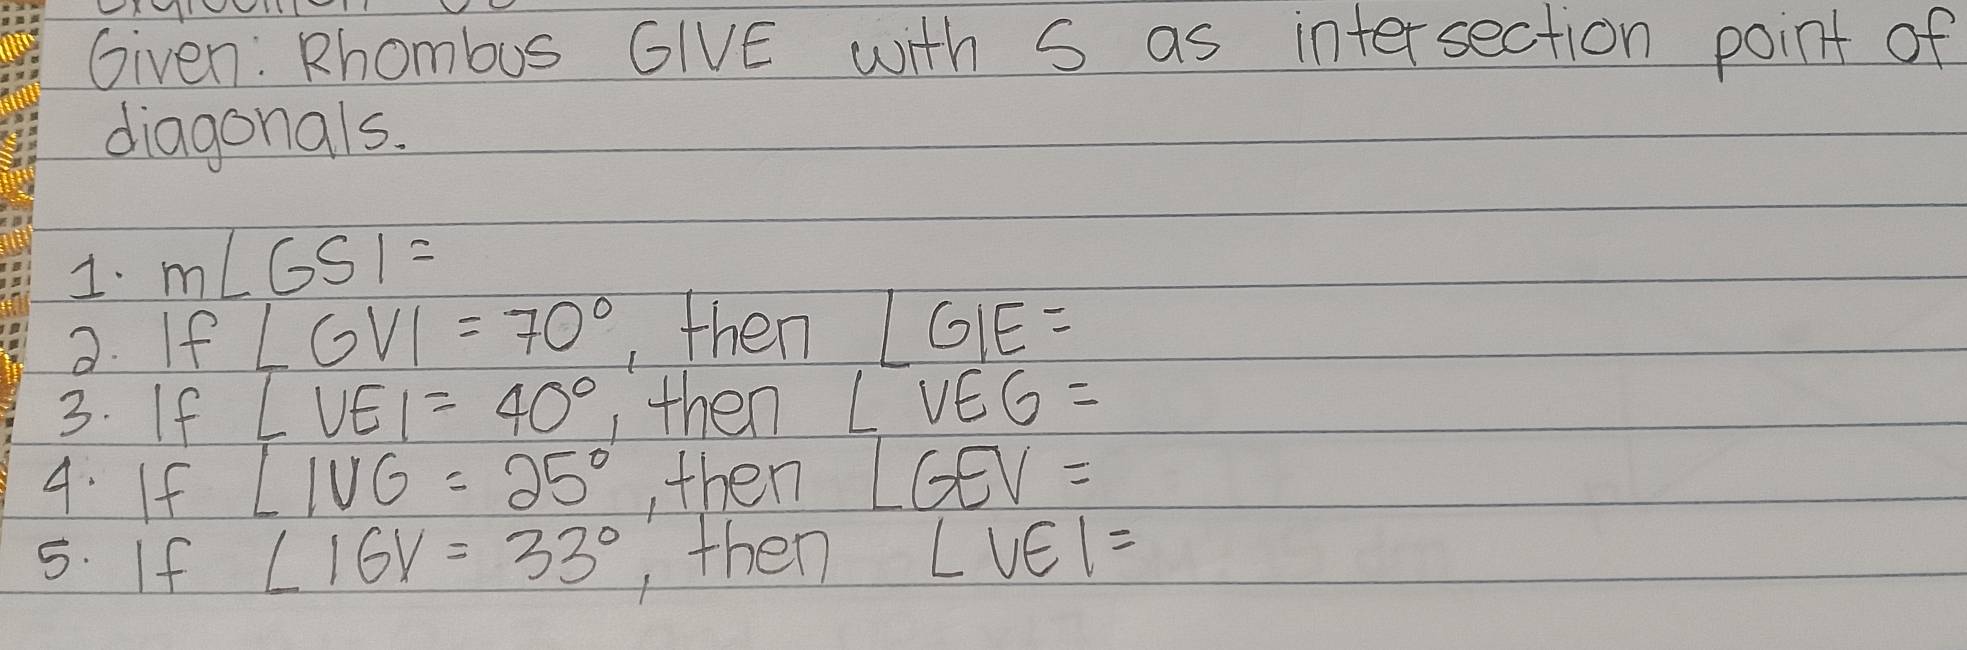 Given: Rhombus GIVE with S as intersection point of
diagonals.
1. m∠GSI =
2. If ∠GVI = 70°, then ∠GIE =
3. If ∠VEI = 40°, then ∠VEG =
4. If ∠IVG = 25°, then ∠GEV =
5. If ∠IGV = 33°, then ∠VEI =